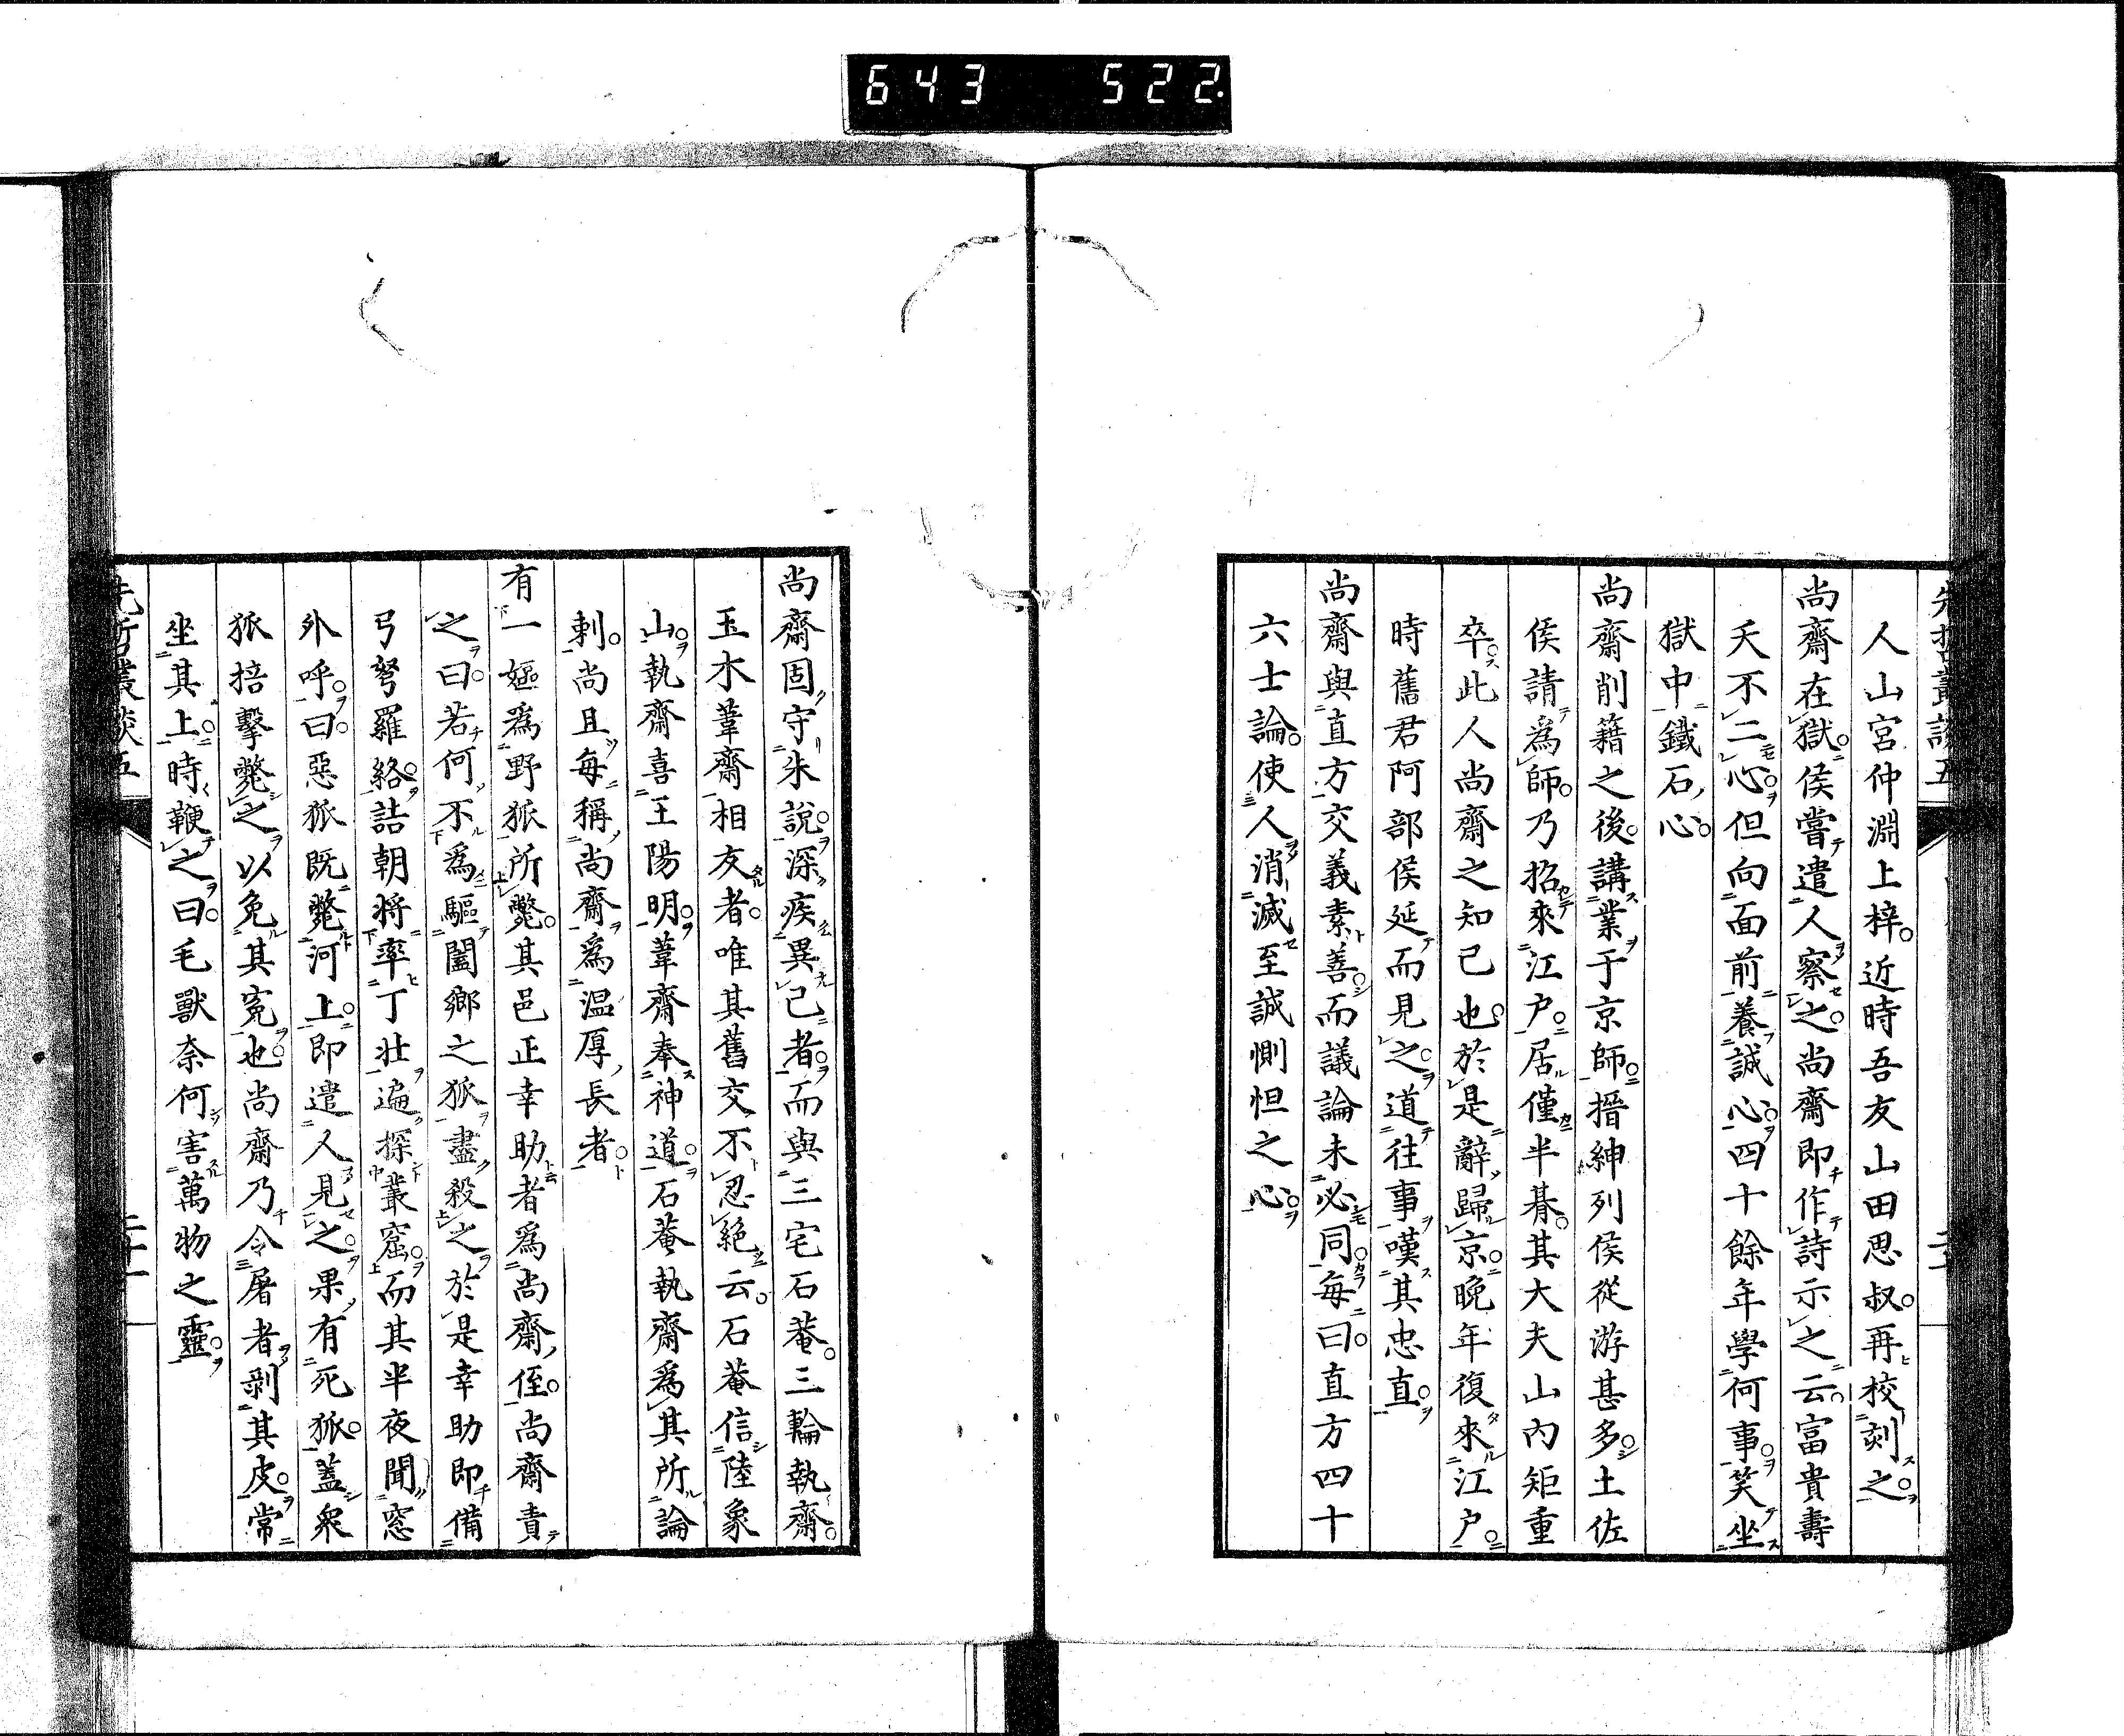 643 522.
先哲叢談五
人山宮仲淵上梓。近時吾友山田思叔。再校刻之。
尚齋在獄。侯嘗遣人察之。尚齋即作詩示之云。富貴壽
夭不二心。但向面前養誠心。四十餘年學何事。笑坐
獄中鐵石心。
尚齋削籍之後。講業于京師。搢紳列侯從游甚多。土佐
侯請為師。乃招來江戶。居僅半朞。其大夫山內矩重
卒。此人尚齋之知己也。於是辭歸京。晚年復來江戶。
時舊君阿部侯延而見之。道往事嘆其忠直。
尚齋與直方交義素善。而議論未必同。每曰。直方四十
六士論。使人消滅至誠惻怛之心。
尚齋固守朱說。深疾異己者。而與三宅石菴。三輪執齋。
玉木葦齋相友者。唯其舊交不忍絕云。石菴信陸象
山。執齋喜王陽明。葦齋奉神道。石菴執齋為其所論
刺。尚且每稱尚齋為温厚長者。
有一嫗為野狐所斃。其邑正幸助者為尚齋侄。尚齋責
之曰。若何不為驅闔鄉之狐盡殺之。於是幸助即備
弓弩羅絡。詰朝將率丁壯遍探叢窟。而其半夜聞窓
外呼。曰。惡狐既斃河上。即遣人見之。果有死狐。蓋衆
狐掊擊斃之。以免其寃也。尚齋乃令屠者剝其皮。常
坐其上。時鞭之曰。毛獸奈何害萬物之靈。
先哲叢談五